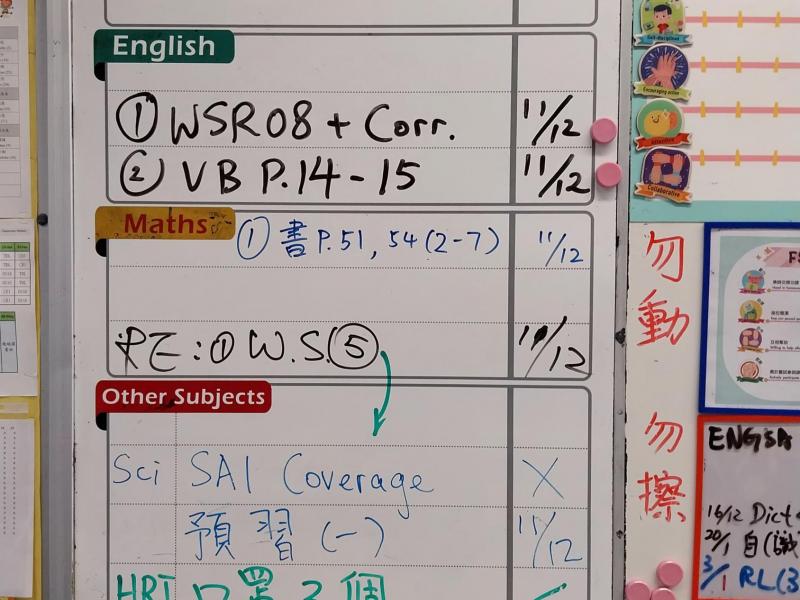 English
① WSR08 + Corr. 11/12
② VB P.14-15 11/12
Maths
① 書 P.51, 54(2-7) 11/12
P.E: ① W.S.⑤
Other Subjects
Sci SA1 Coverage X
預習(一) 11/12
HRT 口罩
勿動
勿擦
Encouraging action
Collaborative
ENGSA
16/12 Dict
20/1
3/1 RL(3